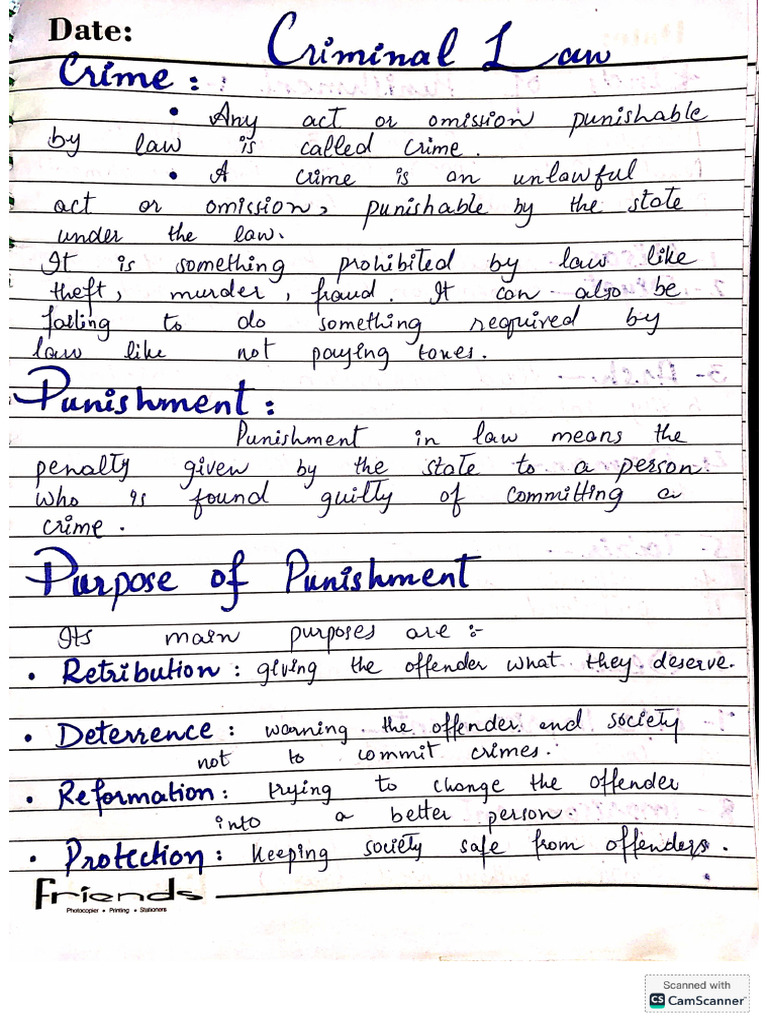 Date:
Criminal Law
Crime :
• Any act or omission punishable
by law is called crime.
• A crime is an unlawful
act or omission, punishable by the state
under the law.
It is something prohibited by law like
theft, murder, fraud. It can also be
failing to do something required by
law like not paying taxes.
Punishment :
Punishment in law means the
penalty given by the state to a person.
who is found guilty of committing a
crime.
Purpose of Punishment
Its main purposes are :-
• Retribution : giving the offender what they deserve.
• Deterrence : warning the offender and society
not to commit crimes.
• Reformation : trying to change the offender
into a better person.
• Protection : Keeping society safe from offenders.
Friends
Photocopier • Printing • Stationers
Scanned with
CS CamScanner